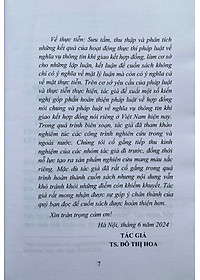 Về thực tiễn: Sưu tầm, thu thập và phân tích
những kết quả của hoạt động thực thi pháp luật về
nghĩa vụ thông tin khi giao kết hợp đồng, làm cơ sở
cho những lập luận, kết luận để cuốn sách không chỉ
có ý nghĩa về mặt lý luận mà còn có ý nghĩa cả
về mặt thực tiễn. Trên cơ sở yêu cầu của pháp luật
và thực tiễn thực hiện, tác giả đề xuất một số kiến
nghị góp phần hoàn thiện pháp luật về hợp đồng nói
chung và pháp luật về nghĩa vụ thông tin khi giao
kết hợp đồng nói riêng ở Việt Nam hiện nay.
Trong quá trình biên soạn, tác giả đã tham khảo
nghiêm túc các công trình nghiên cứu trong và
ngoài nước. Chúng tôi cố gắng tiếp thu những
thành tựu của các nhóm tác giả đi trước, đồng thời
nỗ lực tạo ra sản phẩm nghiên cứu mang màu sắc
riêng. Mặc dù tác giả đã rất cố gắng trong quá
trình hoàn thành cuốn sách nhưng nội dung vẫn
khó tránh khỏi những điểm còn khiếm khuyết. Tác
giả rất mong nhận được sự góp ý chân thành của
quý bạn đọc để cuốn sách được hoàn thiện hơn.
Xin trân trọng cảm ơn!
Hà Nội, tháng 6 năm 2024
TÁC GIẢ
TS. ĐỖ THỊ HOA
7